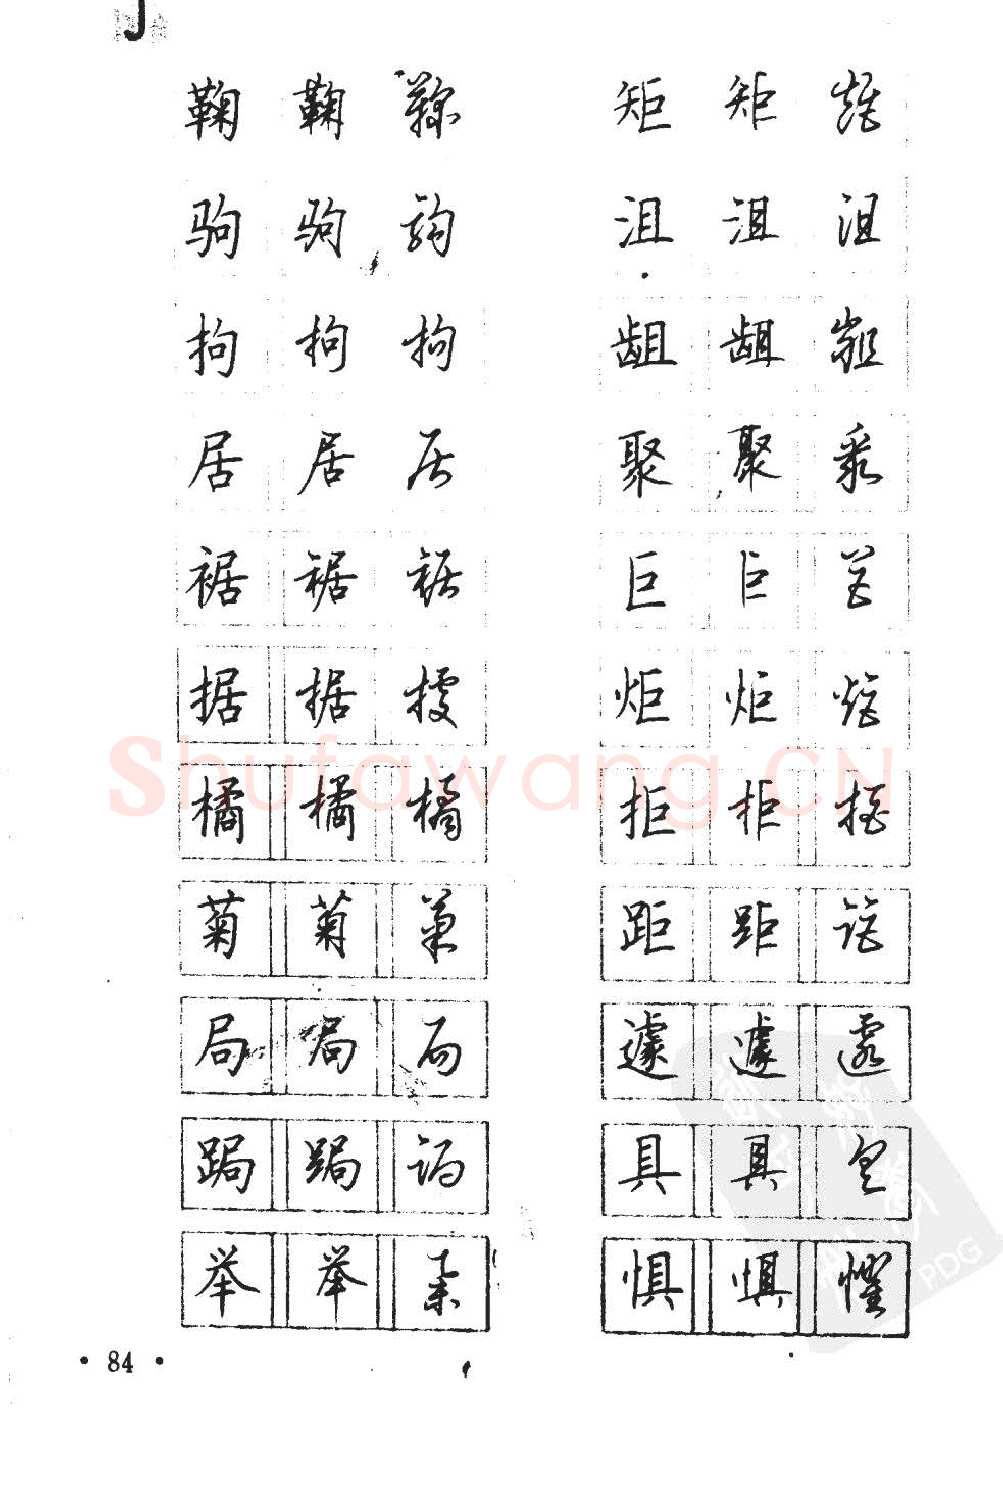 J
鞠 鞠 鞠 矩 矩 矩
驹 驹 驹 沮 沮 沮
拘 拘 拘 龃 龃 龃
居 居 居 聚 聚 聚
裾 裾 裾 巨 巨 巨
据 据 据 炬 炬 炬
橘 橘 橘 拒 拒 拒
菊 菊 菊 距 距 距
局 局 局 遽 遽 遽
跼 跼 跼 具 具 具
举 举 举 惧 惧 惧
• 84 •
Shufawang.CN
PDG